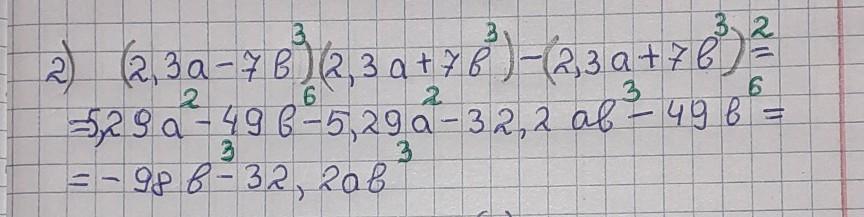 2) (2,3а-7в³)(2,3а+7в³)-(2,3а+7в³)²=
=5,29а²-49в⁶-5,29а²-32,2ав³-49в⁶=
=-98в³-32,2ав³